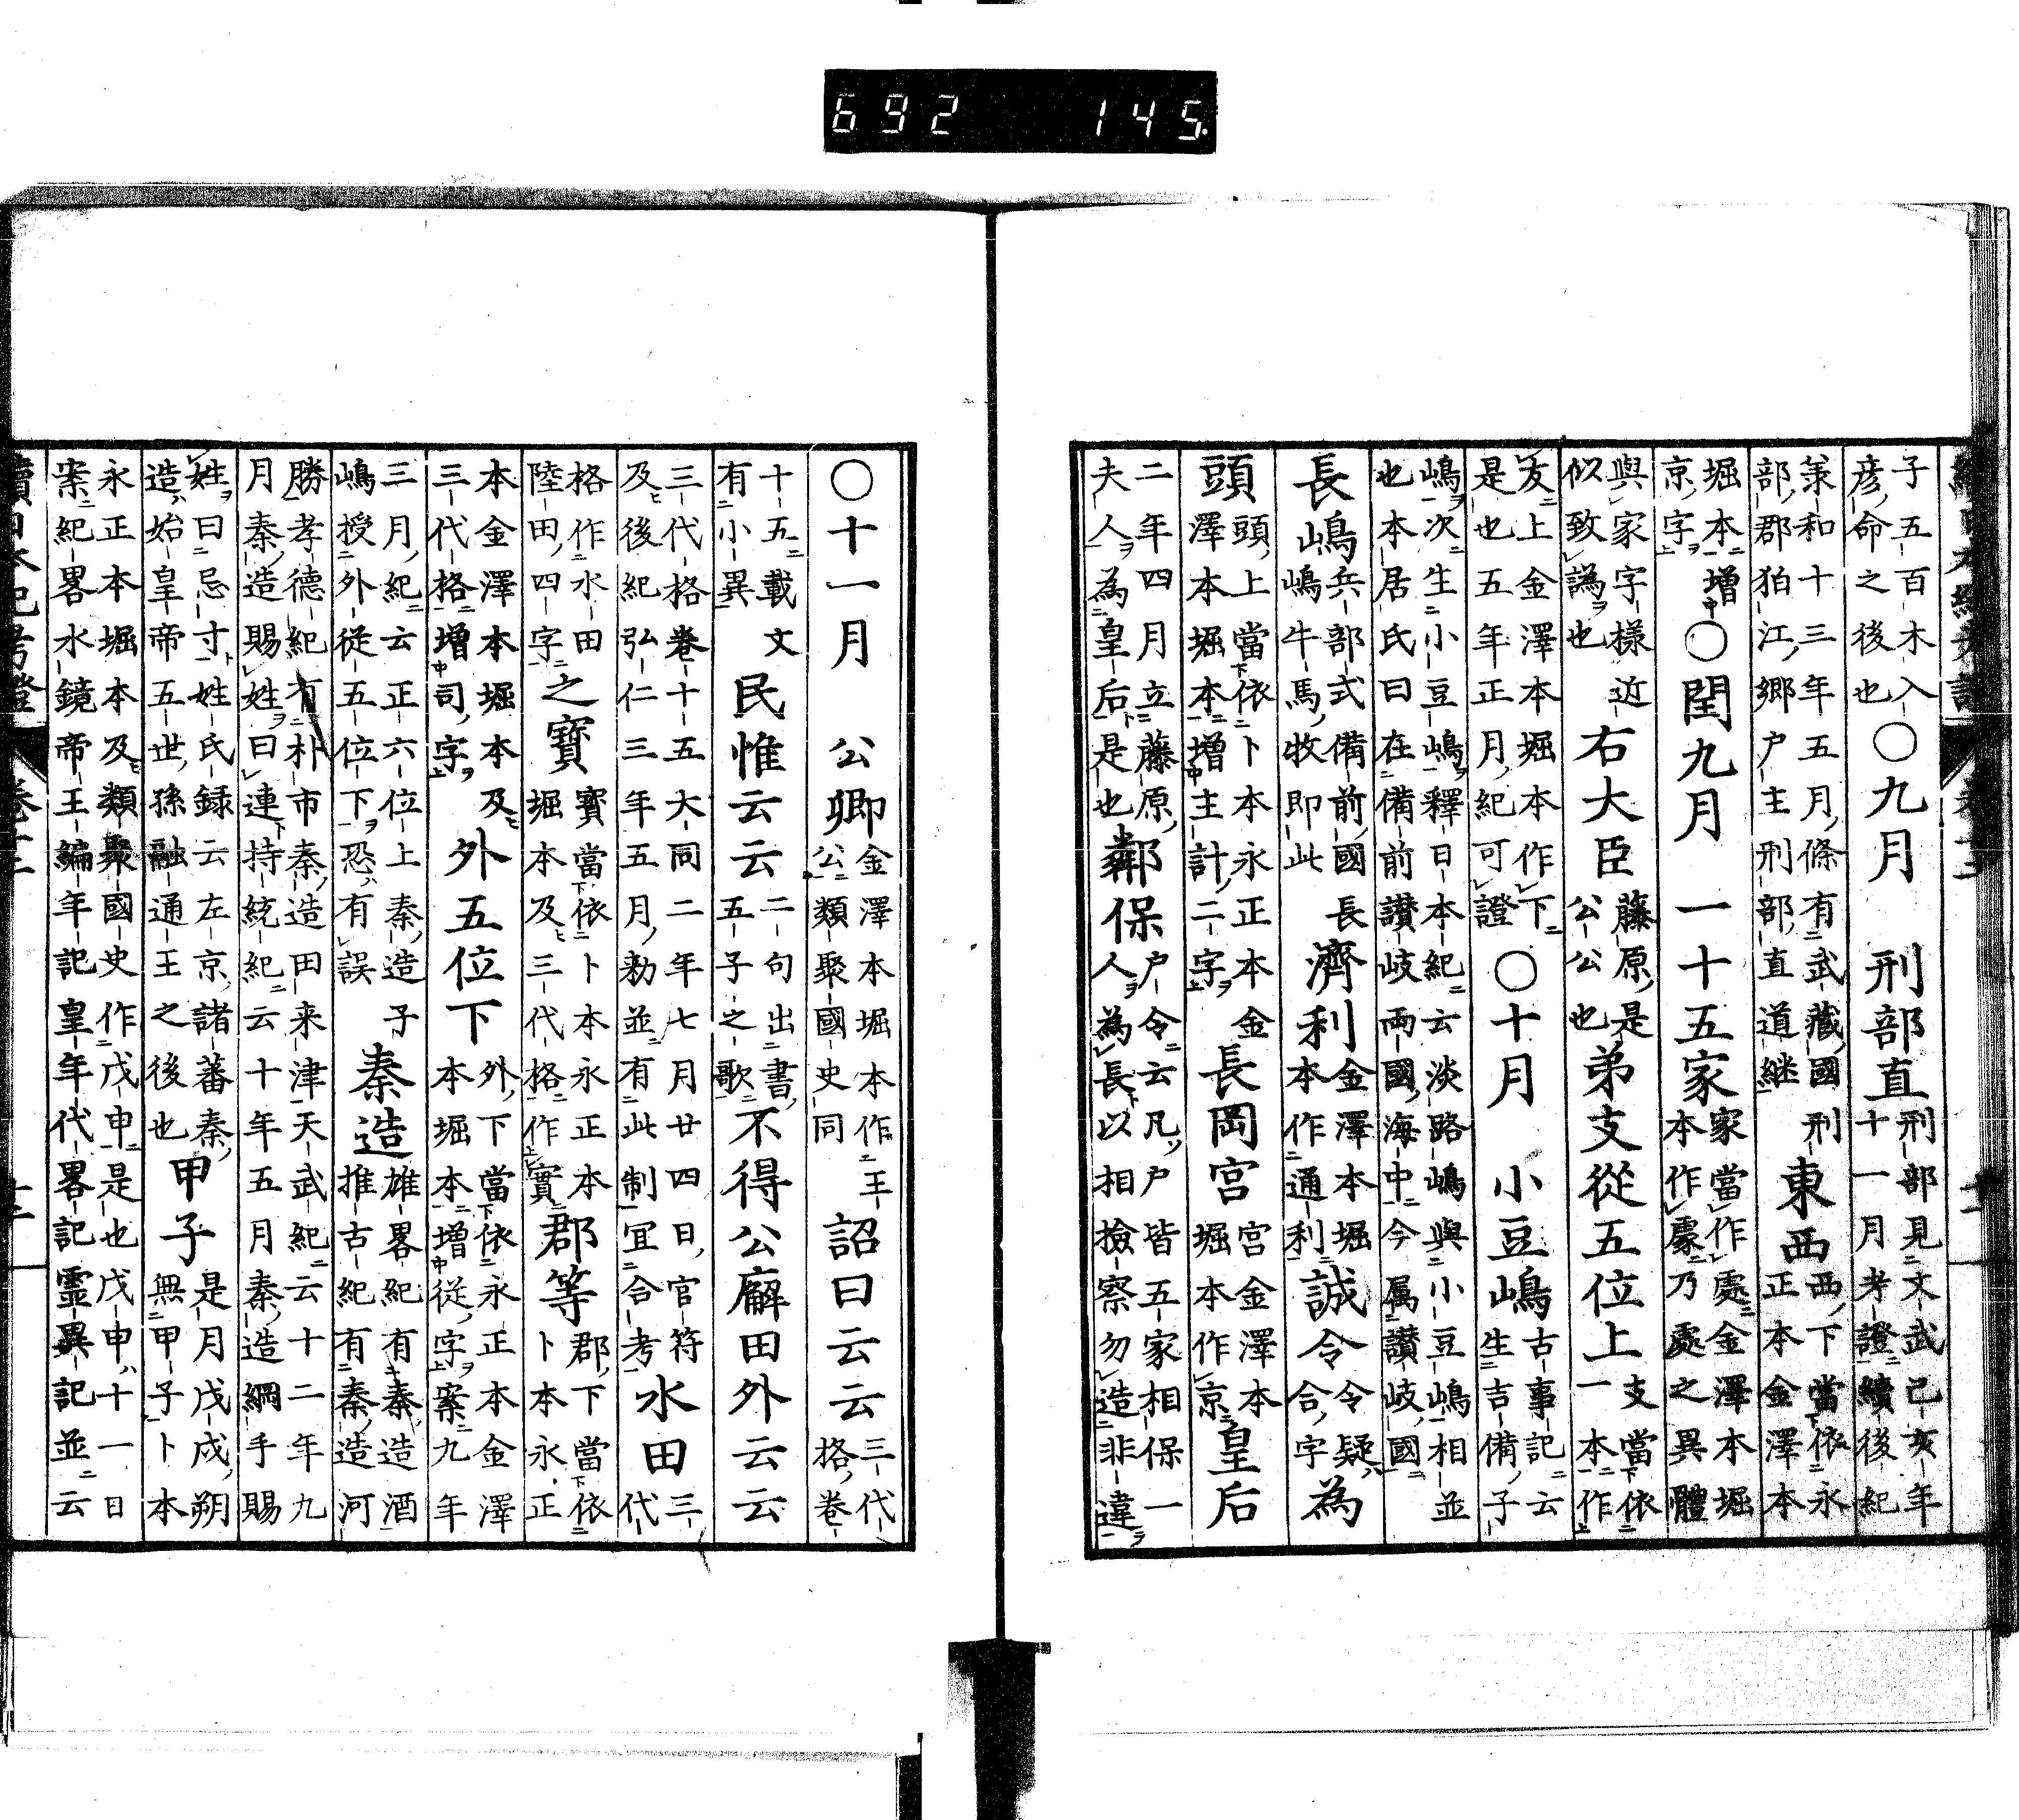 692 145
子五百木入彦命之後也○九月 刑部直刑部見文武己亥年十一月考證續後紀
承和十三年五月條有武藏國刑部郡狛江郷户主刑部直道継東西西下當依永正本金澤本
堀本増京字○閏九月 一十五家家當作處金澤本堀本作䖏乃處之異體
與家字樣近似致譌也右大臣藤原是公公也弟支從五位上支當依一本作
友上金澤本堀本作下是也五年正月紀可證○十月 小豆嶋古事記云生吉備子
嶋次生小豆嶋釋日本紀云淡路嶋與小豆嶋相並也本居氏曰在備前讃岐兩國海中今属讃岐國
長嶋兵部式備前國長嶋牛馬牧即此濟利金澤本堀本作通利誠令令疑合字為
頭頭上當依卜本永正本金澤本堀本増主計二字長岡宮宮金澤本堀本作京皇后
二年四月立藤原夫人為皇后是也鄰保户令云凡户皆五家相保一人為長以相撿察勿造非違
○十一月 公卿金澤本堀本作王公類聚國史同詔曰云云三代格卷
十五載文有小異民惟云云二句出書五子之歌不得公廨田外云云
三代格卷十五大同二年七月廿四日官符及後紀弘仁三年五月勅並有此制宜合考水田三代
格作水田陸田四字之寶寶當依卜本永正本堀本及三代格作實郡等郡下當依卜本永正
本金澤本堀本及三代格増司字外五位下外下當依永正本金澤本堀本増從字案九年
三月紀云正六位上秦造子嶋授外從五位下恐有誤秦造雄畧紀有秦造酒推古紀有秦造河
勝孝德紀有朴市秦造田来津天武紀云十二年九月秦造賜姓曰連持統紀云十年五月秦造綱手賜
姓曰忌寸姓氏録云左京諸蕃秦造始皇帝五世孫融通王之後也甲子是月戊戌朔無甲子卜本
永正本堀本及類聚國史作戊申是也戊申十一日案紀畧水鏡帝王編年記皇年代畧記靈異記並云
續日本紀考證 卷十二